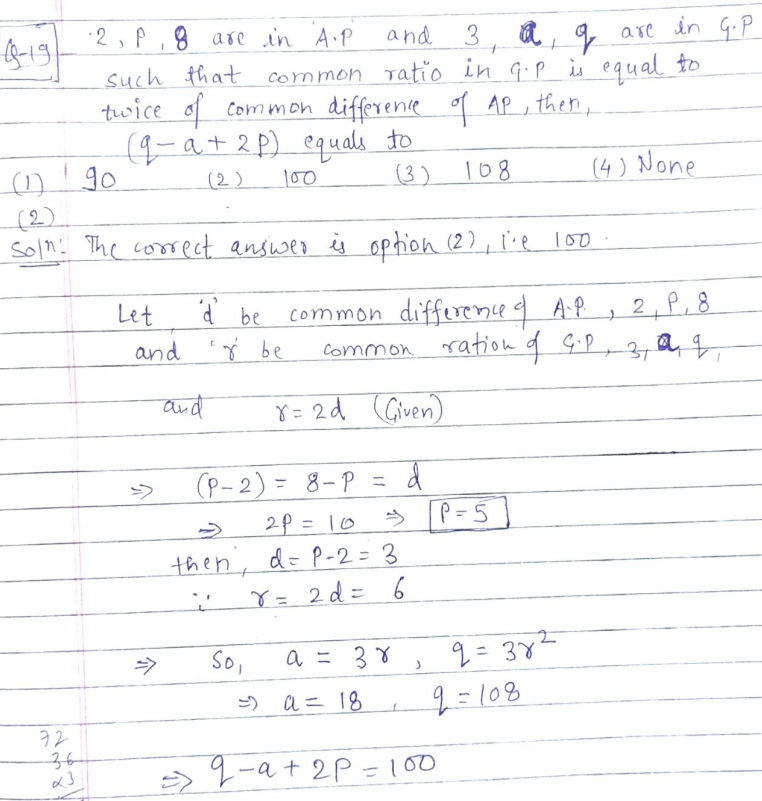 Q-19 2, P, 8 are in A.P and 3, a, q are in G.P
such that common ratio in G.P is equal to
twice of common difference of AP, then,
(q-a+2P) equals to
(1) 90 (2) 100 (3) 108 (4) None
(2)
Solⁿ: The correct answer is option (2), i.e 100.
Let 'd' be common difference of A.P., 2, P, 8
and 'r be common ration of G.P, 3, a, q,
and r = 2d (Given)
⇒ (P-2) = 8-P = d
⇒ 2P = 10 ⇒ P = 5
then, d = P-2 = 3
∵ r = 2d = 6
⇒ So, a = 3r, q = 3r²
⇒ a = 18, q = 108
72
36
23
⇒ q-a+2P = 100